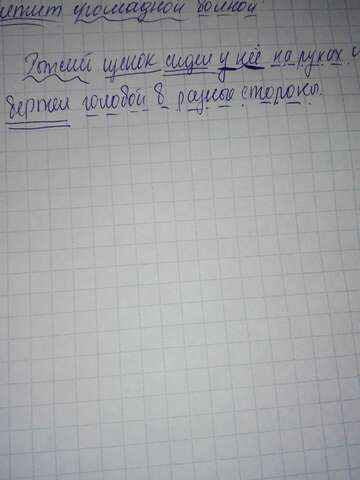 громадной волной
Рыжий щенок сидел у неё на руках и
вертел головой в разные стороны.